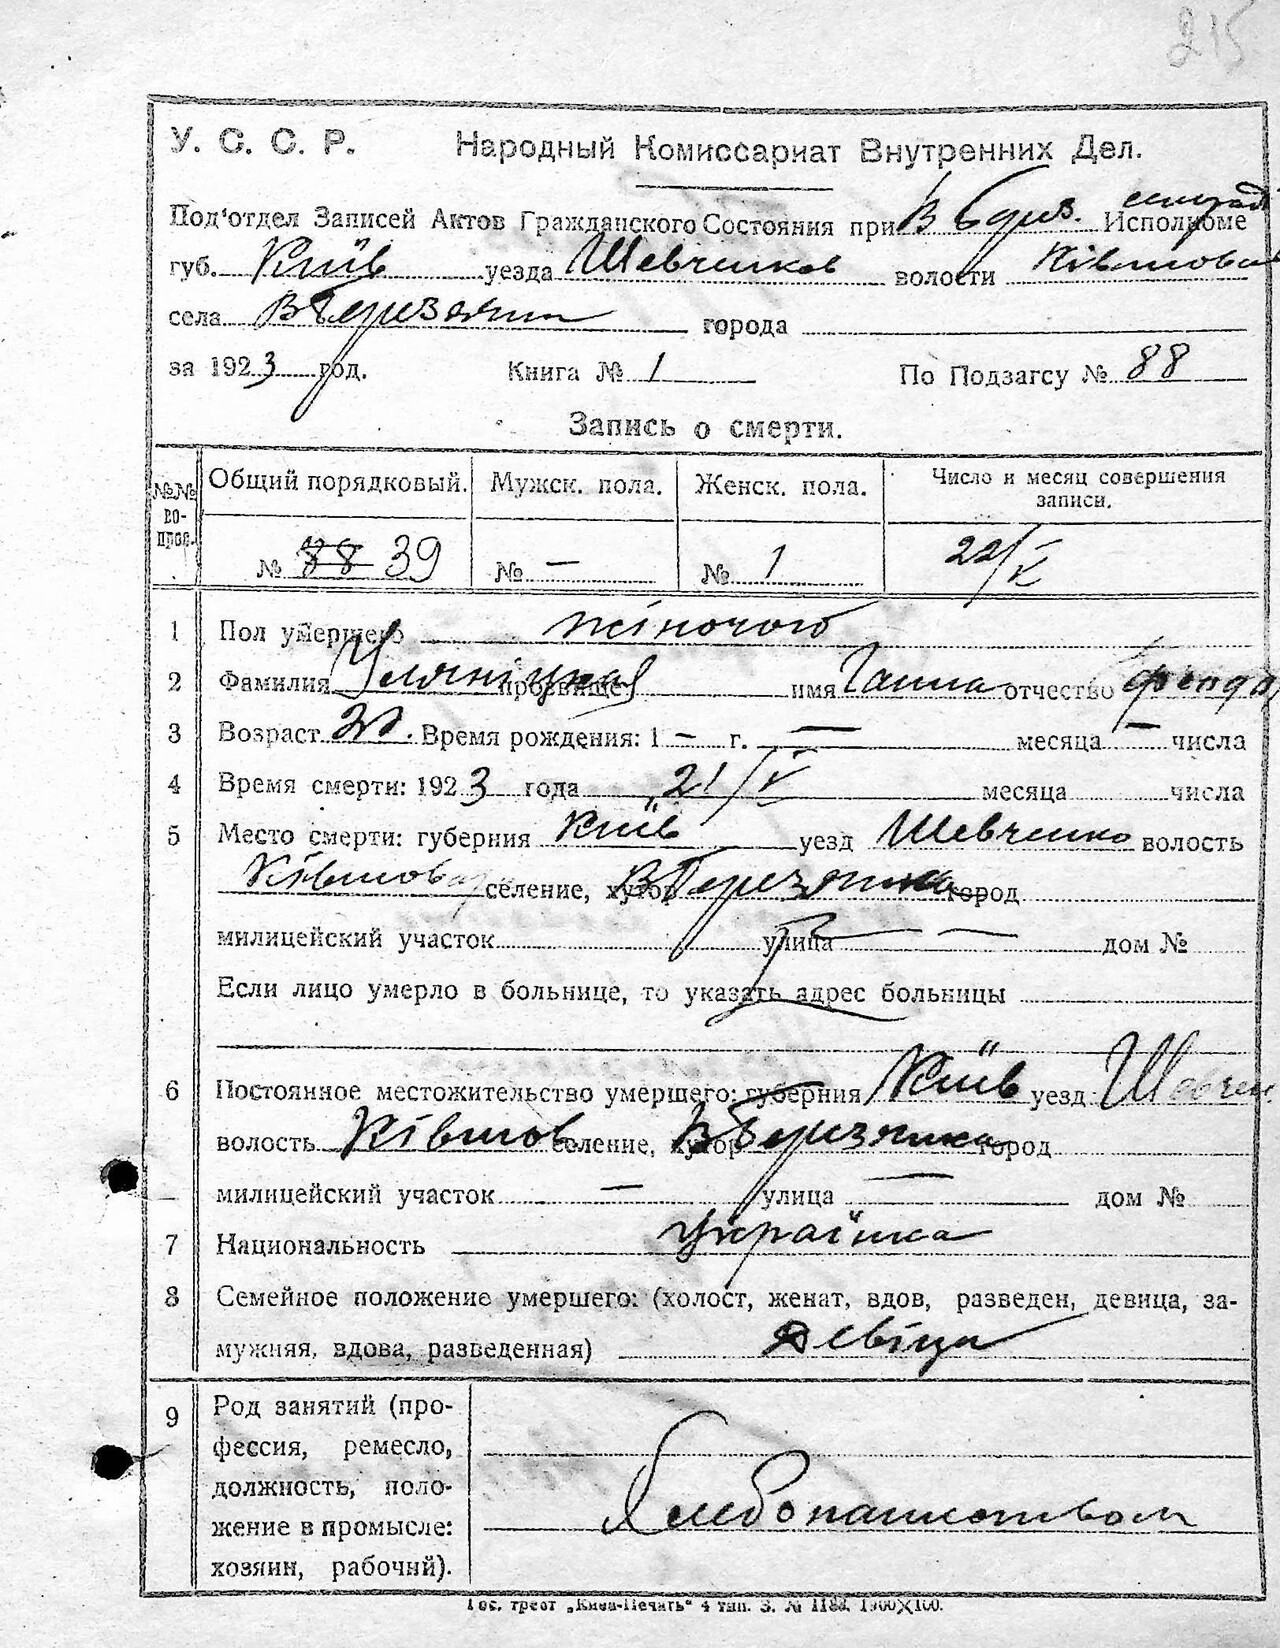 215
У. С. С. Р. Народный Комиссариат Внутренних Дел.
Под'отдел Записей Актов Гражданского Состояния при В Бдиз. Исполкоме
губ. Київ уезда Шевченков волости Ківшовськ
села ВБерезянки города
за 1923 год. Книга № 1 По Подзагсу № 88
Запись о смерти.
№№ во-прос. Общий порядковый. Мужск. пола. Женск. пола. Число и месяц совершения записи.
№ 88 39 № — № 1 22/V
1 Пол умершего жіночого
2 Фамилия прозвище имя Ганна отчество
3 Возраст Время рождения: 1 — г. — месяца — числа
4 Время смерти: 1923 года 21/V месяца числа
5 Место смерти: губерния Київ уезд Шевченко волость
Ківшов селение, хутор ВБерезянка город
милицейский участок улица — — дом №
Если лицо умерло в больнице, то указать адрес больницы
6 Постоянное местожительство умершего: губерния Київ уезд Шевчен.
волость Ківшов селение, хутор ВБерезянка город
милицейский участок — улица — дом №
7 Национальность Українка
8 Семейное положение умершего: (холост, женат, вдов, разведен, девица, за-
мужняя, вдова, разведенная) Девіца
9 Род занятий (про-
фессия, ремесло,
должность, поло-
жение в промысле:
хозяин, рабочий).
Хлебопашеством
Гос. трест „Киев-Печать" 4 тип. З. № 1188. 1900×100.